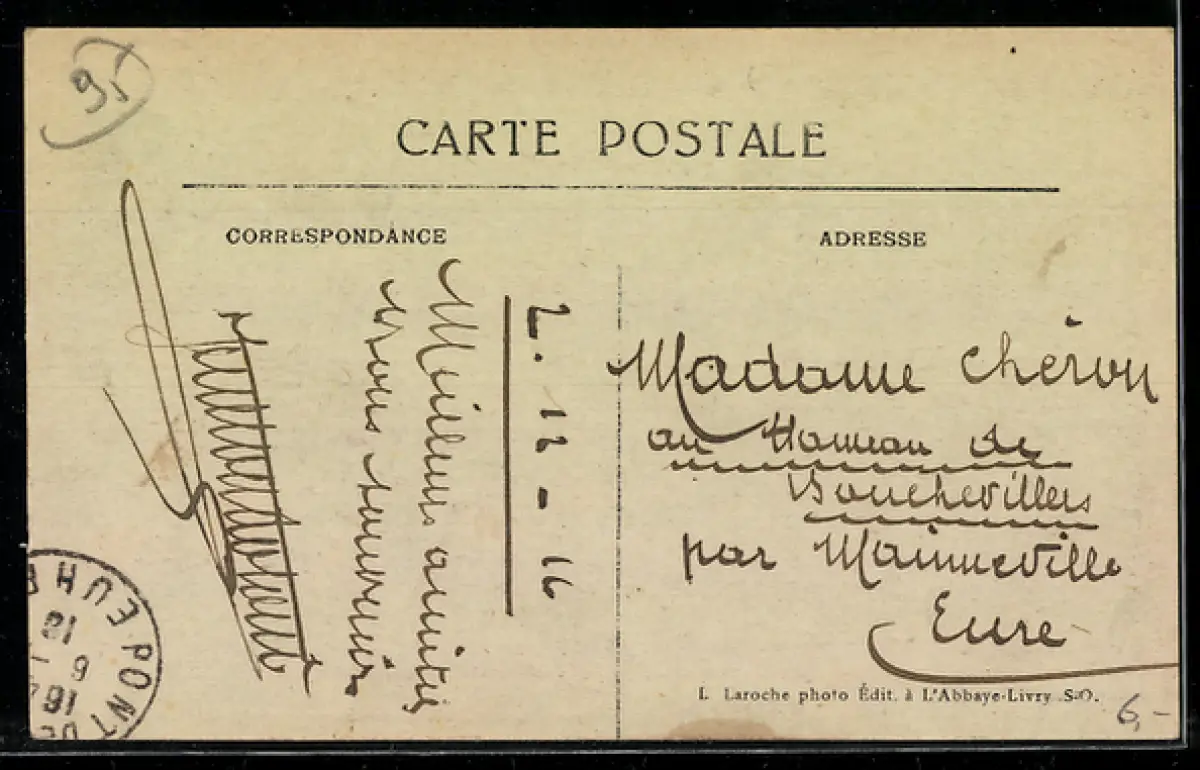 95
CARTE POSTALE
CORRESPONDANCE
ADRESSE
2. 12 - 16
Meilleurs amitiés
bons souvenirs
Madame Chéron
au Hameau de
Bouchevilliers
par Mainneville
Eure
L. Laroche photo Édit. à L'Abbaye-Livry S-O.
6,-
PONT